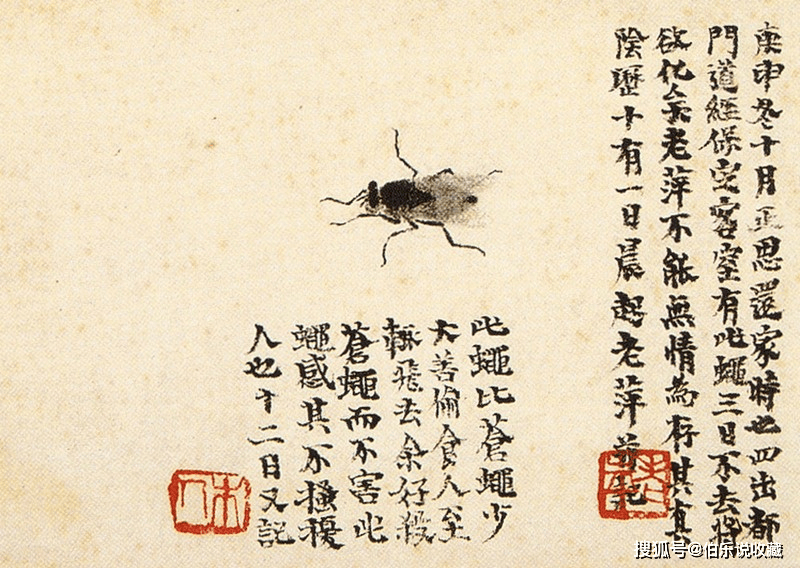 庚申冬十月正思還家時也四出都
門道經保定客室有此蠅三日不去將
欲化矣老萍不能無情為存其真
陰曆十有一日晨起老萍並記
此蠅比蒼蠅少
大善偷食人至
輒飛去余好殺
蒼蠅而不害此
蠅感其不搔擾
人也十二日又記
木人
搜狐号@伯乐说收藏